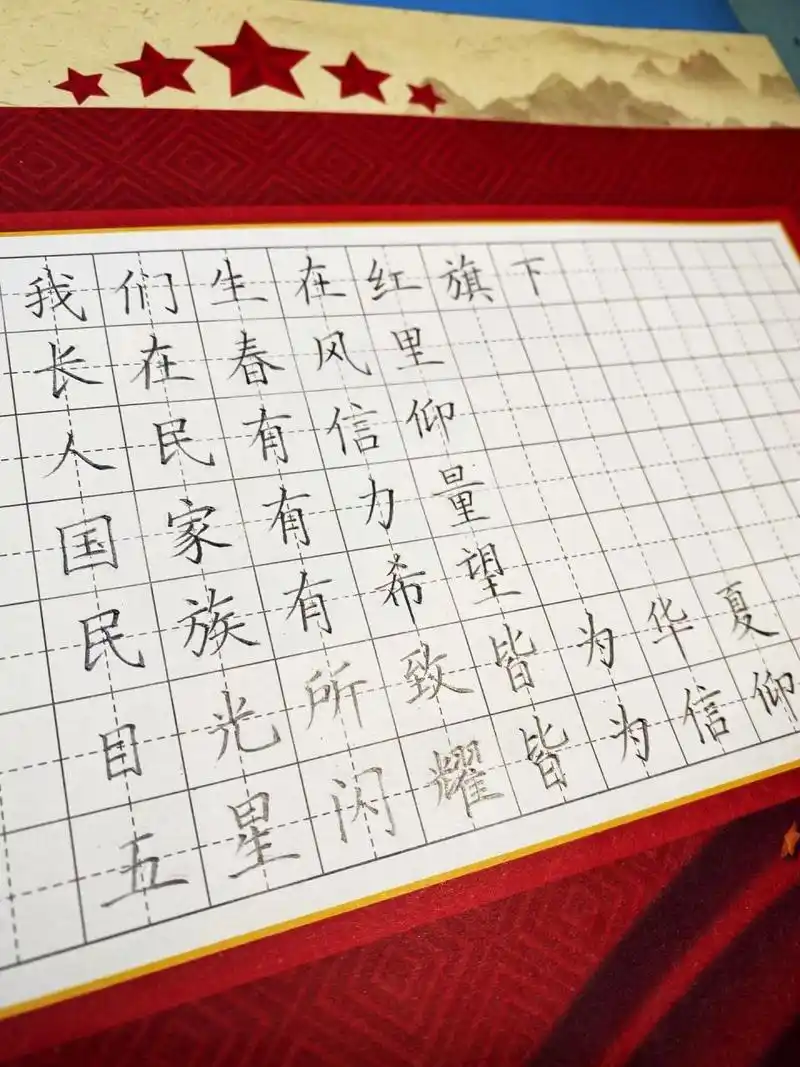 我们生在红旗下
长在春风里
人民有信仰
国家有力量
民族有希望
目光所致皆为华夏
五星闪耀皆为信仰